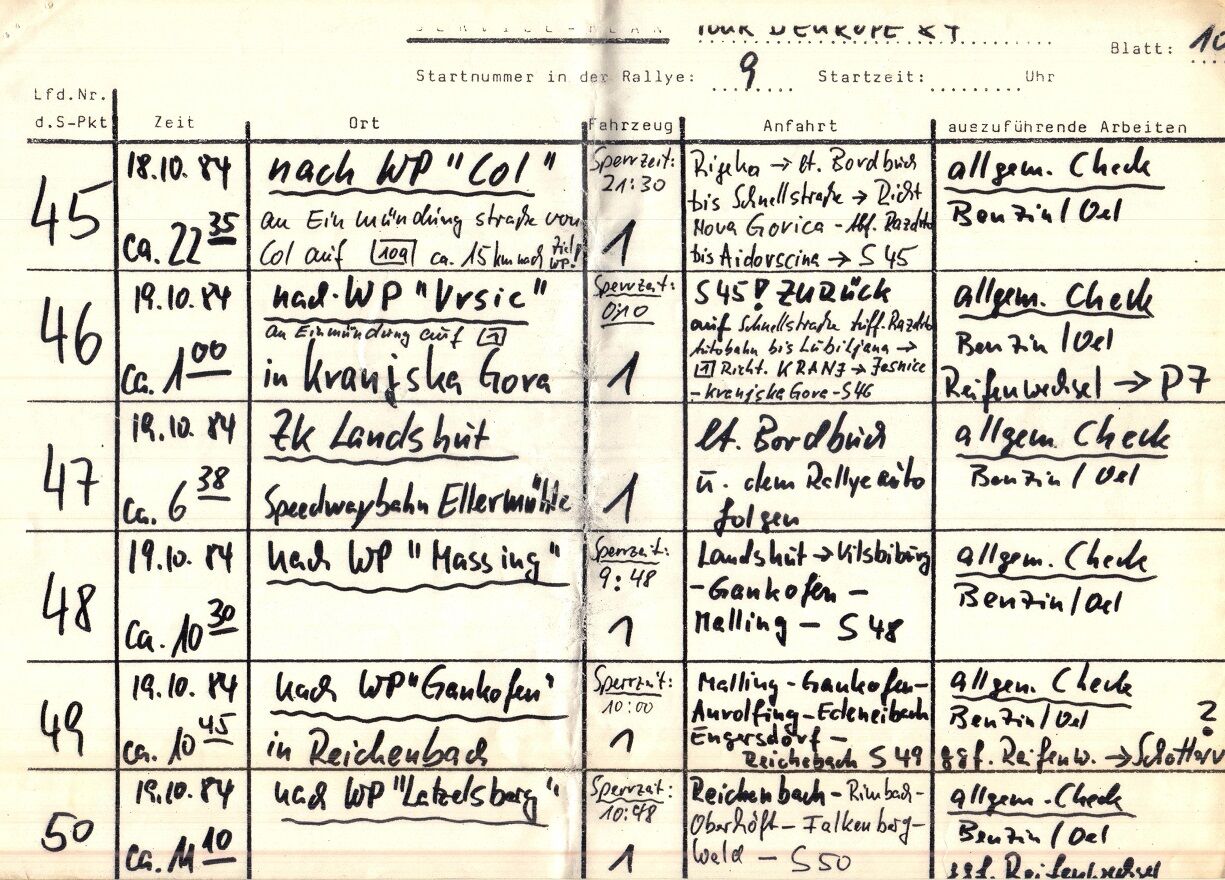 SERVICE-PLAN TOUR D'EUROPE 84
Blatt: 10
Startnummer in der Rallye: 9 Startzeit: Uhr
Lfd.Nr.
d.S-Pkt Zeit Ort Fahrzeug Anfahrt auszuführende Arbeiten
45
18.10.84
ca. 22 35
nach WP "Col"
an Einmündung straße von
Col auf 10a ca. 15 km nach Ziel WP!
Sperrzeit:
21:30
1
Rijeka → lt. Bordbuch
bis Schnellstraße → Richt
Nova Gorica - Abf. Razdrto
bis Aidovscina → S 45
allgem. Check
Benzin/Oel
46
19.10.84
ca. 1 00
nach WP "Vrsic"
an Einmündung auf 1
in Kranjska Gora
Sperrzeit:
0:10
1
S45! ZURÜCK
auf Schnellstraße Riff. Razdrto
Autobahn bis Lubiljana →
1 Richt. KRANJ → Jesnice
- Kranjska Gora - S46
allgem. Check
Benzin/Oel
Reifenwechsel → P7
47
19.10.84
ca. 6 38
ZK Landshut
Speedwaybahn Ellermühle
1
lt. Bordbuch
u. dem Rallyeauto
folgen
allgem. Check
Benzin/Oel
48
19.10.84
ca. 10 30
nach WP "Massing"
Sperrzeit:
9:48
1
Landshut → Vilsbiburg
- Gankofen -
Malling - S 48
allgem. Check
Benzin/Oel
49
19.10.84
ca. 10 45
nach WP "Gankofen"
in Reichenbach
Sperrzeit:
10:00
1
Malling - Gankofen -
Anrolfing - Edeneibach
Engersdorf -
Reichebach S 49
allgem. Check
Benzin/Oel
ggf. Reifenw. → Schotter ?
50
19.10.84
ca. 11 10
nach WP "Latzelsberg"
Sperrzeit:
10:48
1
Reichenbach - Rimbach -
Oberhöft - Falkenberg -
Wald - S 50
allgem. Check
Benzin/Oel
ggf. Reifenwechsel